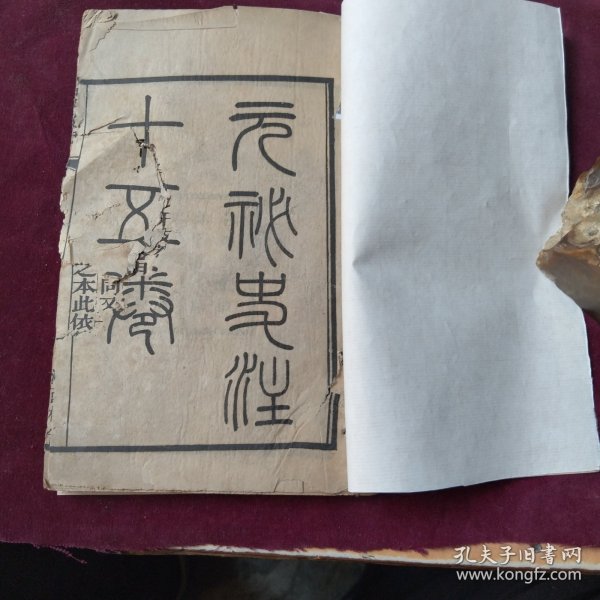 元祕史注
十五卷
同文
之本此依
孔夫子旧书网
www.kongfz.com